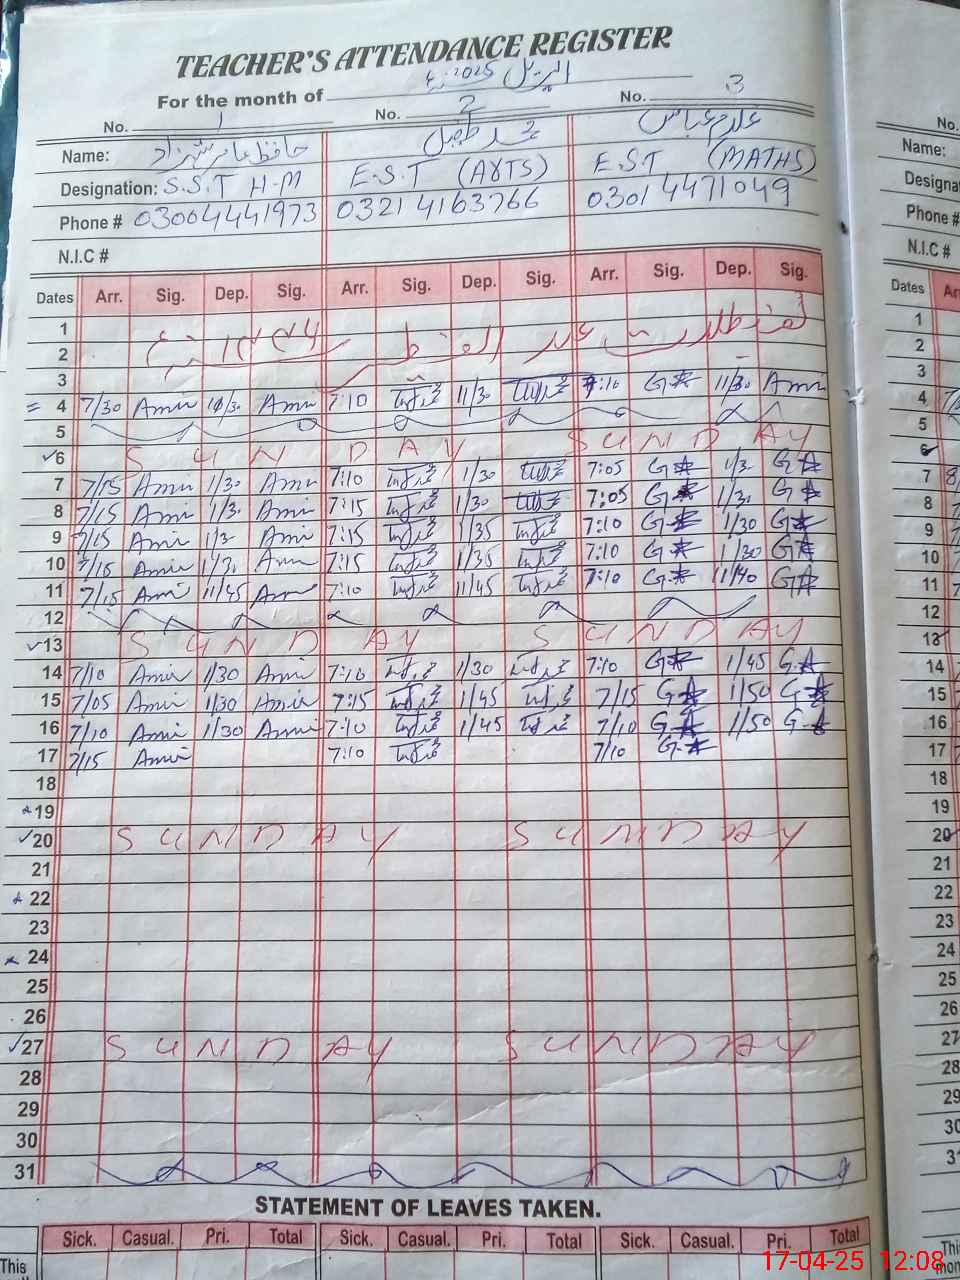 TEACHER'S ATTENDANCE REGISTER
For the month of اپریل 2025ء
No. 1 No. 2 No. 3
Name: حافظ عامر شہزاد محمد طفیل غلام عباس
Designation: S.S.T H-M E.S.T (ARTS) E.S.T (MATHS)
Phone # 03004441973 03214163766 03014471049
N.I.C #
Dates Arr. Sig. Dep. Sig. Arr. Sig. Dep. Sig. Arr. Sig. Dep. Sig.
1
2 عید الفطر
3
= 4 7/30 Amir Amir 7:10 طفیل 11/30 طفیل 7:10 G.A 11/30 Amir
5
✓6 SUNDAY SUNDAY
7 7/15 Amir 1/30 Amir 7:10 طفیل 1/30 طفیل 7:05 G.A 1/3 G.A
8 7/15 Amir 1/3 Amir 7:15 طفیل 1/30 طفیل 7:05 G.A 1/3 G.A
9 7/15 Amir 1/3 Amir 7:15 طفیل 1/35 طفیل 7:10 G.A 1/30 G.A
10 7/15 Amir 1/3 Amir 7:15 طفیل 1/35 طفیل 7:10 G.A 1/30 G.A
11 7/15 Amir 11/45 Amir 7:10 طفیل 11/45 طفیل 7:10 G.A 11/40 G.A
12
✓13 SUNDAY SUNDAY
14 7/10 Amir 1/30 Amir 7:10 طفیل 1/30 طفیل 7:10 G.A 1/45 G.A
15 7/05 Amir 1/30 Amir 7:15 طفیل 1/45 طفیل 7/15 G.A 1/50 G.A
16 7/10 Amir 1/30 Amir 7:10 طفیل 1/45 طفیل 7/10 G.A 1/50 G.A
17 7/15 Amir 7:10 طفیل 7/10 G.A
18
19
✓20 SUNDAY SUNDAY
21
22
23
24
25
26
✓27 SUNDAY SUNDAY
28
29
30
31
STATEMENT OF LEAVES TAKEN.
Sick. Casual. Pri. Total Sick. Casual. Pri. Total Sick. Casual. Pri. Total
This
No.
Name:
Designa
Phone #
N.I.C #
Dates Arr
1
2
3
4
5
6
7
8
9
10
11
12
13
14
15
16
17
18
19
20
21
22
23
24
25
26
27
28
29
30
31
This
mon
17-04-25 12:08